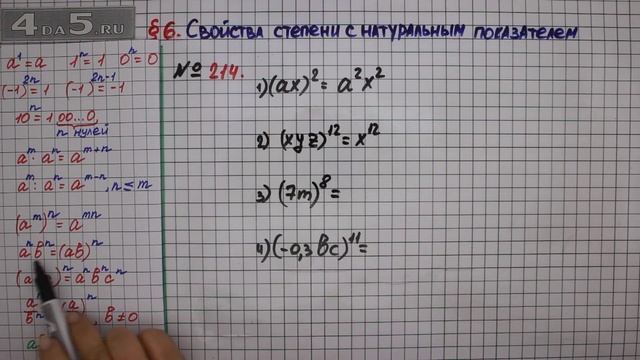 4DA5.RU
§6. Свойства степени с натуральным показателем
a¹ = a 1ⁿ = 1 0ⁿ = 0
(-1)²ⁿ = 1 (-1)²ⁿ⁻¹ = -1
10ⁿ = 100...0,
n нулей
aᵐ · aⁿ = aᵐ⁺ⁿ
aᵐ : aⁿ = aᵐ⁻ⁿ, n ≤ m
(aᵐ)ⁿ = aᵐⁿ
aⁿbⁿ = (ab)ⁿ
= aⁿbⁿcⁿ
, b ≠ 0
№ 214.
1) (ax)² = a²x²
2) (xyz)¹² = x¹²
3) (7m)⁸ =
4) (-0,3bc)¹¹ =